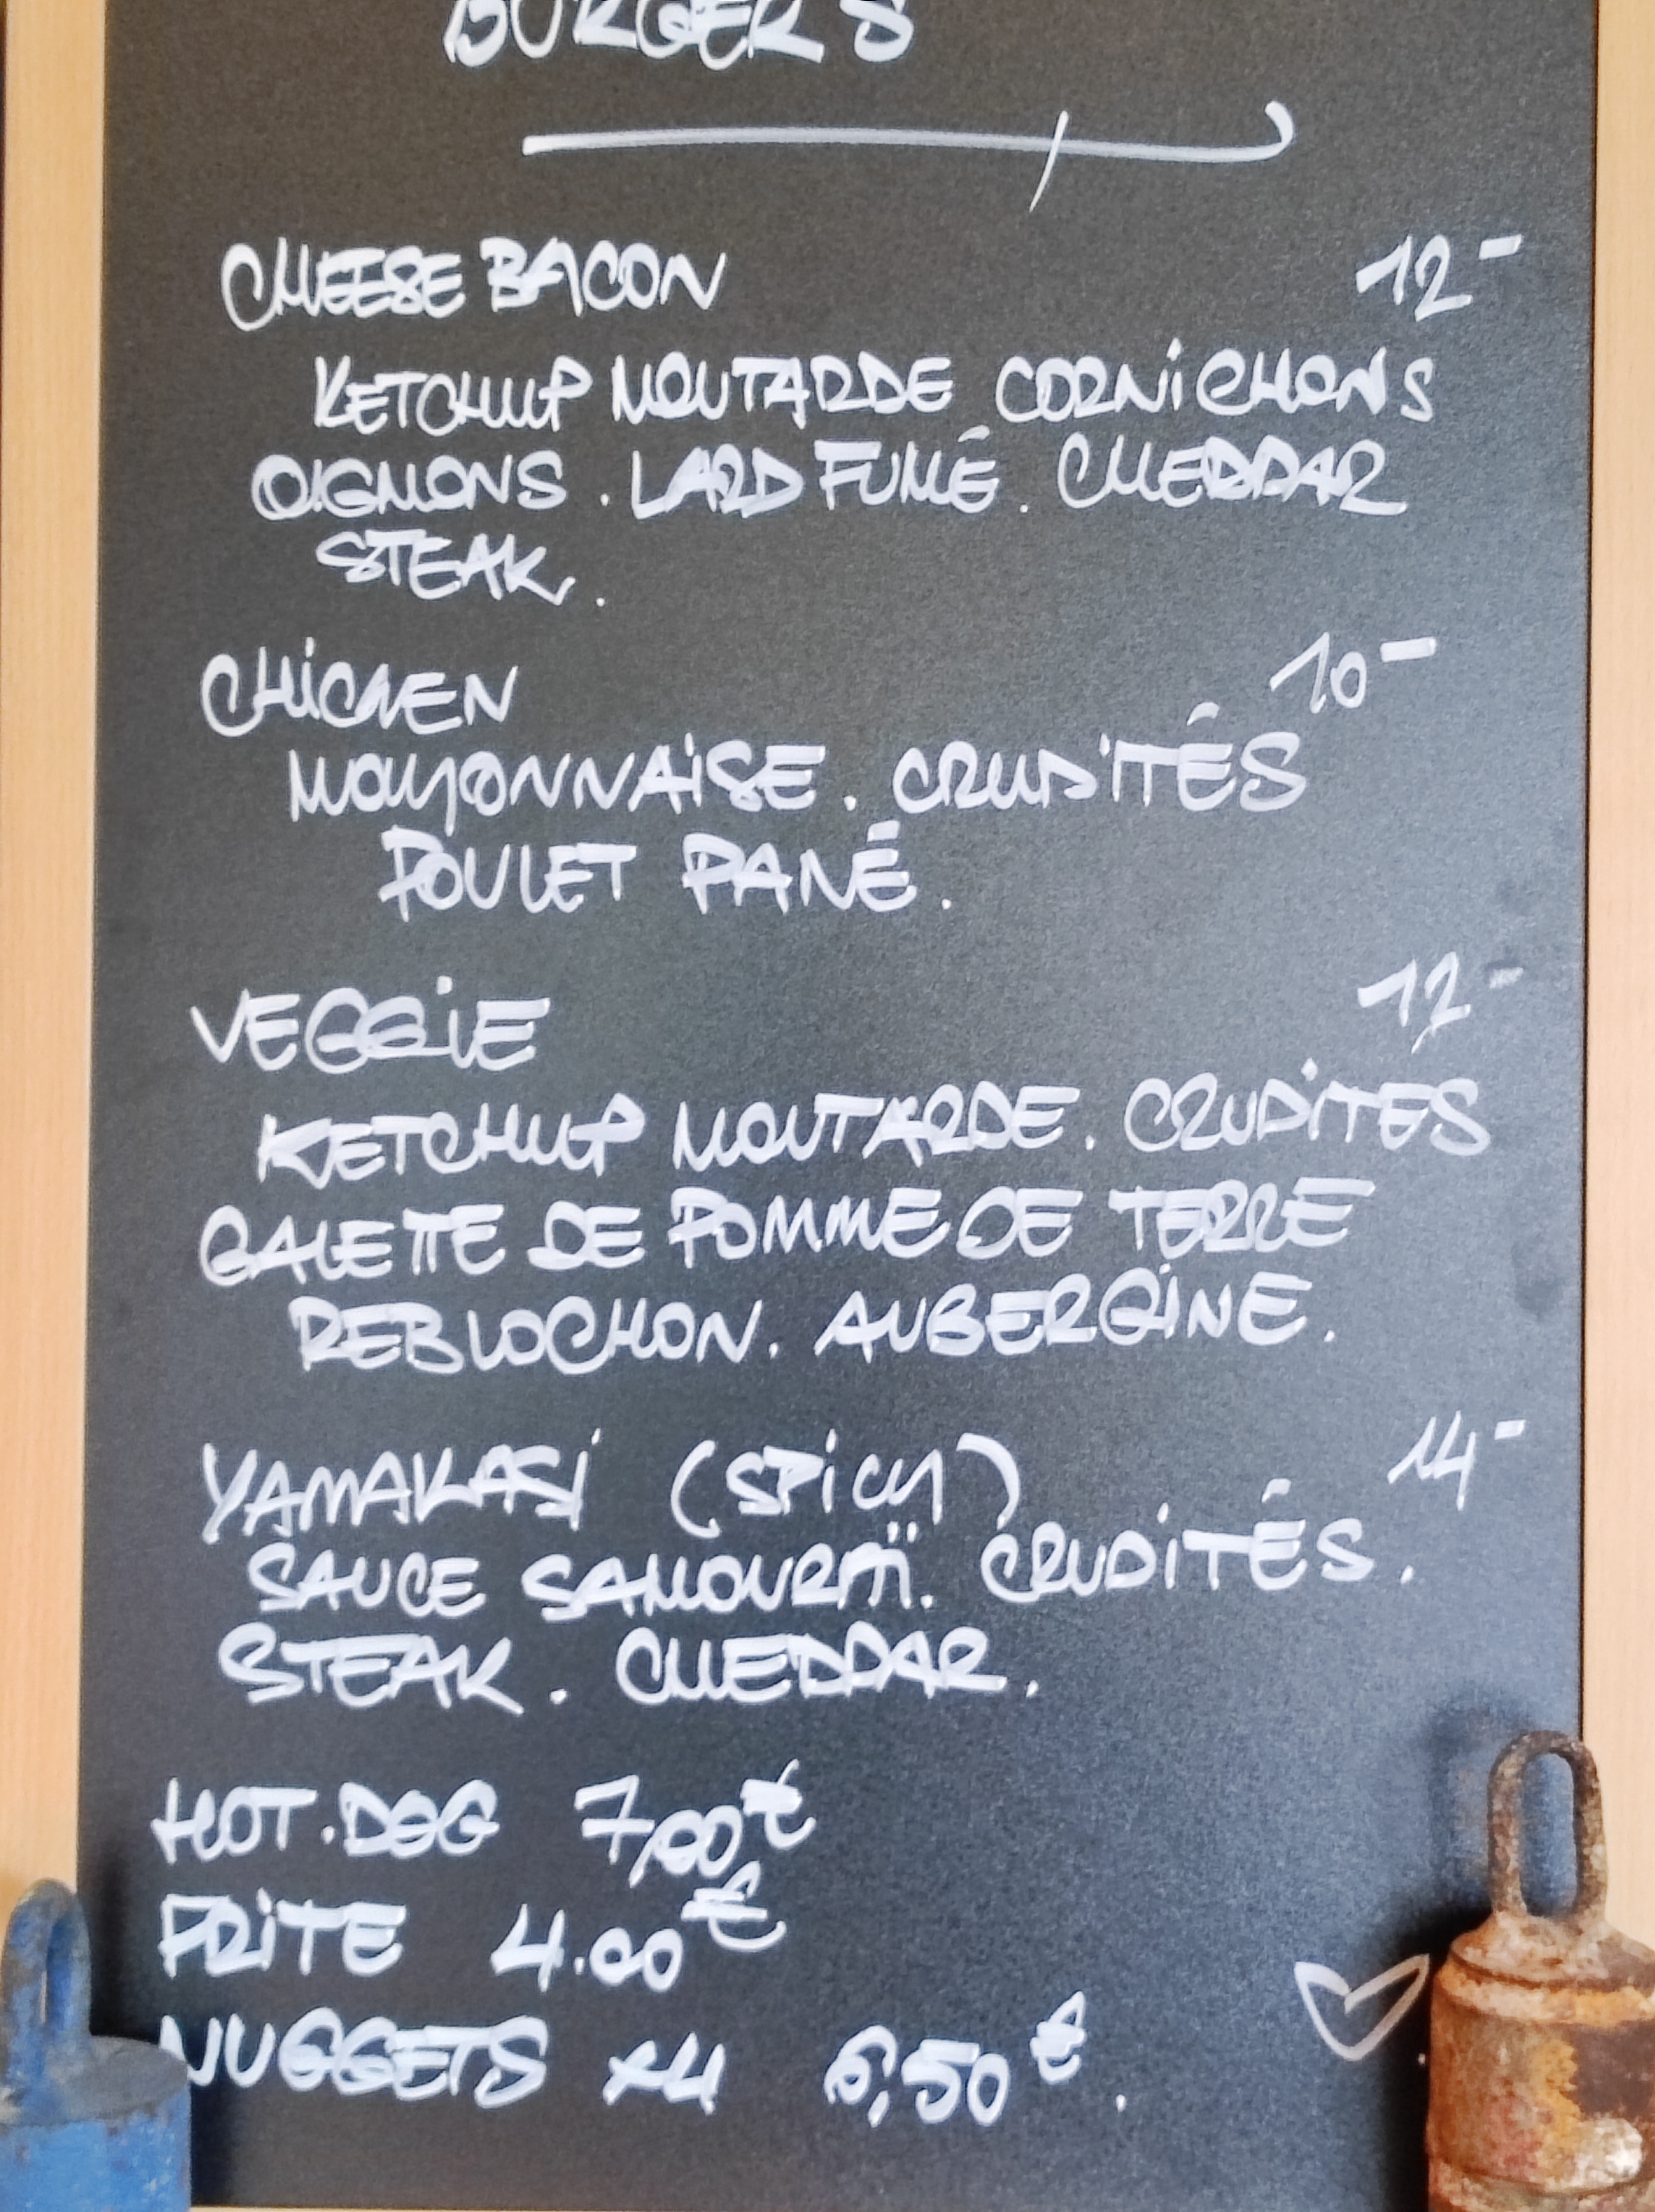 BURGERS
CHEESE BACON 12-
KETCHUP MOUTARDE CORNiCHONS
OIGNONS . LARD FUMÉ . CHEDDAR
STEAK .
CHiCKEN 10-
MAYONNAiSE . CRUDiTÉS
POULET PANÉ .
VEGGiE 12-
KETCHUP MOUTARDE . CRUDiTES
GALETTE DE POMME DE TERRE
REBLOCHON . AUBERGiNE .
YAMAKASi (SPiCY) 14-
SAUCE SAMOURAÏ . CRUDiTÉS .
STEAK . CHEDDAR .
HOT.DOG 7,00€
FRiTE 4.00€
NUGGETS x4 6,50€ .